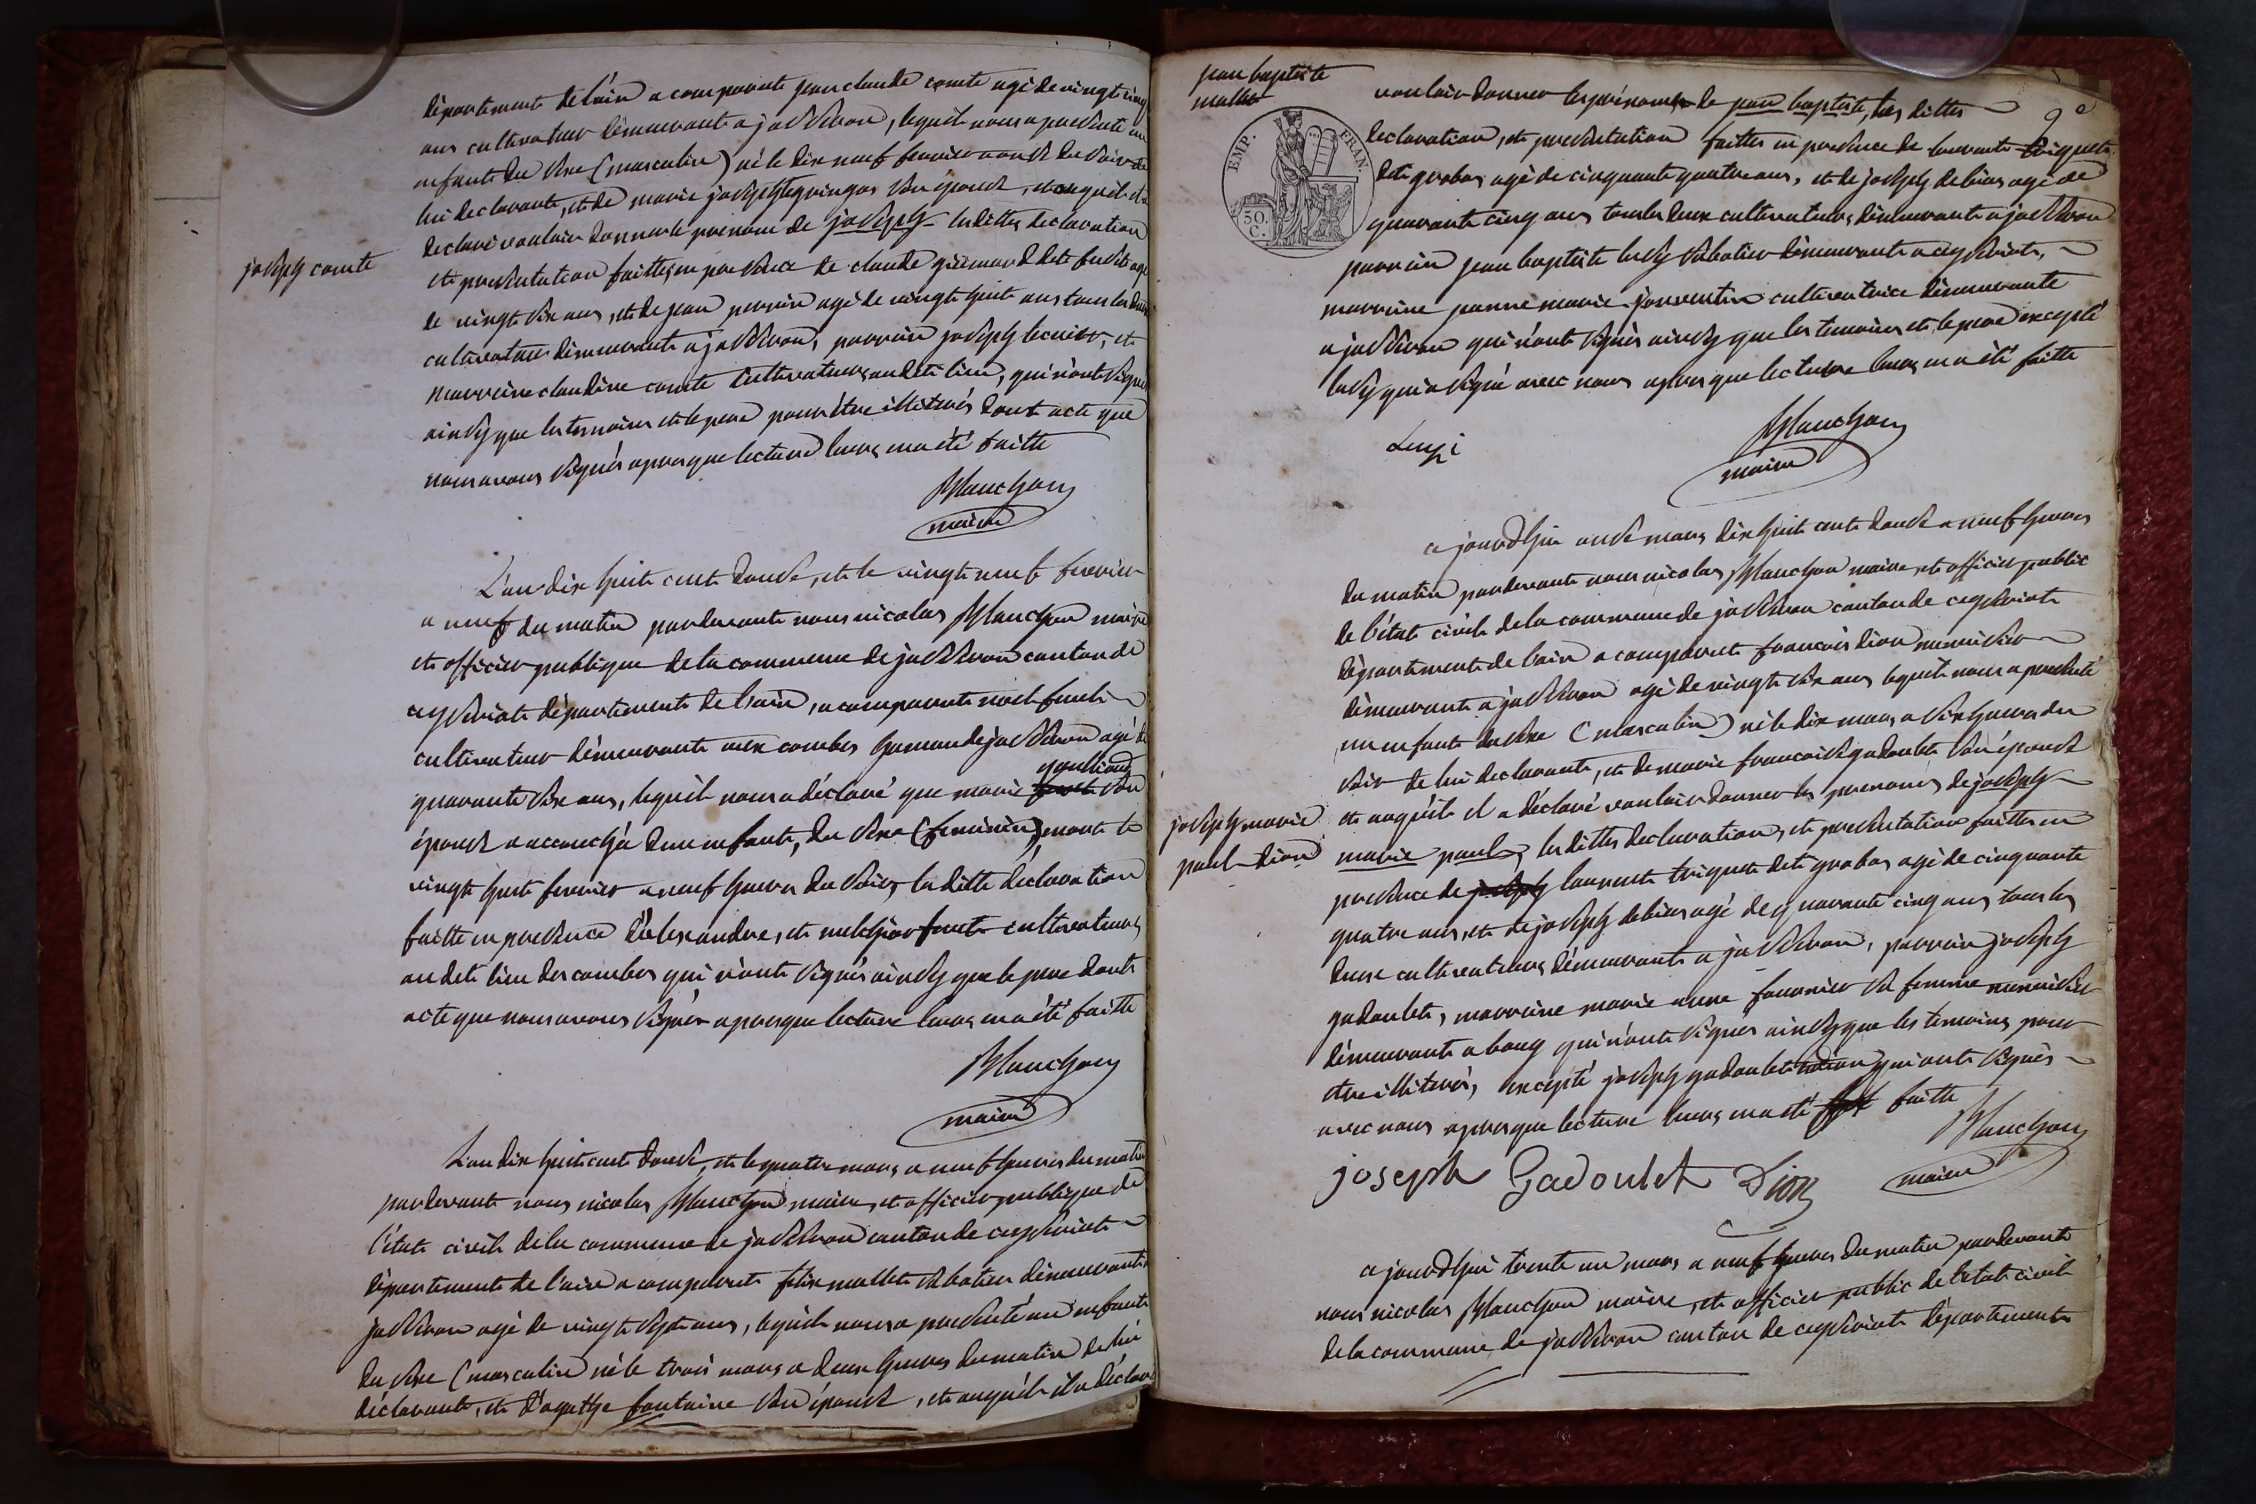 département de l'ain a comparute jean claude comte agé de vingt cinq
ans cultivateur démeurante a jasseron, lequil nous a presenté un
enfante du sexe (masculin) né le dix neuf fevrier du soir de
lui declarante, et de marie josephte son epouse, et auquil il a
declaré vouloir donner le prenom de joseph les dittes declaration
joseph comte
et presentation faittes en presence de claude guimard dete agé
de vingt six ans, et de jean perrin agé de vingt huit ans tous les deux
cultivateurs démeurante a jasseron, parrain joseph, et
marreine claudine comte cultivateurs au dete lieu, qui n'ont signé
ainsy que les temoins et le pere pour être illiterés dont acte que
nous avons signés apres que lecture leurs en a été faitte
Blanchon
maire
L'an dix huit cent douse, et le vingt neuf fevrier
a neuf du matin pardevante nous nicolas Blanchon maire
et officier publique de la commune de jasseron canton de
ceyseriate département de l'ain, a comparute
cultivateur démeurante aux combes hameau de jasseron agé de
quarante six ans, lequil nous a déclaré que marie gautier son
épouse a accouché d'un enfante, du sexe (feminin), morte le
vingt huit fevrier a neuf heures du soir, la ditte déclaration
faitte en presence d'alexandre, et melchior cultivateurs
au dete lieu des combes qui n'ont signés ainsy que le pere dont
acte que nous avons signés apres que lecture leurs en a été faitte
Blanchon
maire
L'an dix huit cent douse, et le quatre mars a neuf heures du matin
pardevante nous nicolas Blanchon maire, et officier publique de
l'état civil de la commune de jasseron canton de ceyseriate
département de l'ain a comparute felix mallet sabotier démeurante a
jasseron agé de vingt sept ans, lequil nous a presenté un enfante
du sexe (masculin né le trois mars a deux heures du matin de lui
déclarante, et d'agathe fontaine son épouse, et auquil il a déclaré
jean baptiste
mallet
vouloir donner les prénoms de jean baptiste, les dittes
EMP. FRAN.
50. C.
declaration, et presentation faittes en presence de laurente triquete
dete grobas agé de cinquante quatre ans, et de joseph debias agé de
quarante cinq ans tous les deux cultivateurs, démeurante a jasseron
parrain jean baptiste sabotier démeurante a ceyseriate,
marreine jeanne marie cultivatrice démeurante
a jasseron qui n'ont signés ainsy que les temoins et le pere excepté
qui a signé avec nous apres que lecture leurs en a été faitte
Blanchon
maire
ce jourd'hui onse mars dix huit cent douse a neuf heures
du matin pardevante nous nicolas Blanchon maire, et officier public
de l'état civil de la commune de jasseron canton de ceyseriate
département de l'ain a comparute francois dion menuisier
démeurante a jasseron agé de vingt six ans lequil nous a presenté
un enfante du sexe (masculin) né le dix mars a six heures du
soir de lui declarante, et de marie francoise gadoulet son épouse
joseph marie
paul dion
et auquil il a déclaré vouloir donner les prenoms de joseph
marie paul, les dittes declaration, et presentation faittes en
presence de joseph laurente triquete dete grobas agé de cinquante
quatre ans, et de joseph debias agé de quarante cinq ans tous les
deux cultivateurs démeurante a jasseron, parrain joseph
gadoulet, marreine marie anne fournier sa femme menuisier
démeurante a bourg qui n'ont signés ainsy que les temoins pour
etre illiterés, excepté joseph gadoulet et dion qui ont signés
avec nous apres que lecture leurs en a été faitte
Blanchon
maire
joseph Gadoulet Dion
ce jourd'hui trente un mars a neuf heures du matin pardevante
nous nicolas Blanchon maire, et officier public de l'état civil
de la commune de jasseron canton de ceyseriate département